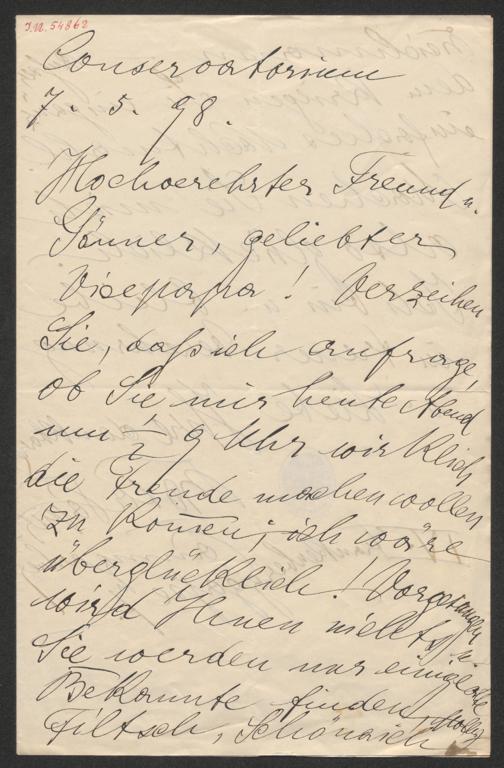 I.N. 54862
Conservatorium
7. 5. 98.
Hochverehrter Freund u.
Gönner, geliebter
Vicepapa! Verzeihen
Sie, daß ich anfrage,
ob Sie mir heute Abend
um 9 Uhr wirklich
die Freude machen wollen
zu kom̅en; ich wäre
überglücklich! Vorgesungen
wird Ihnen nichts u.
Sie werden nur einige alte
Bekannte finden
Filtsch, Schönaich